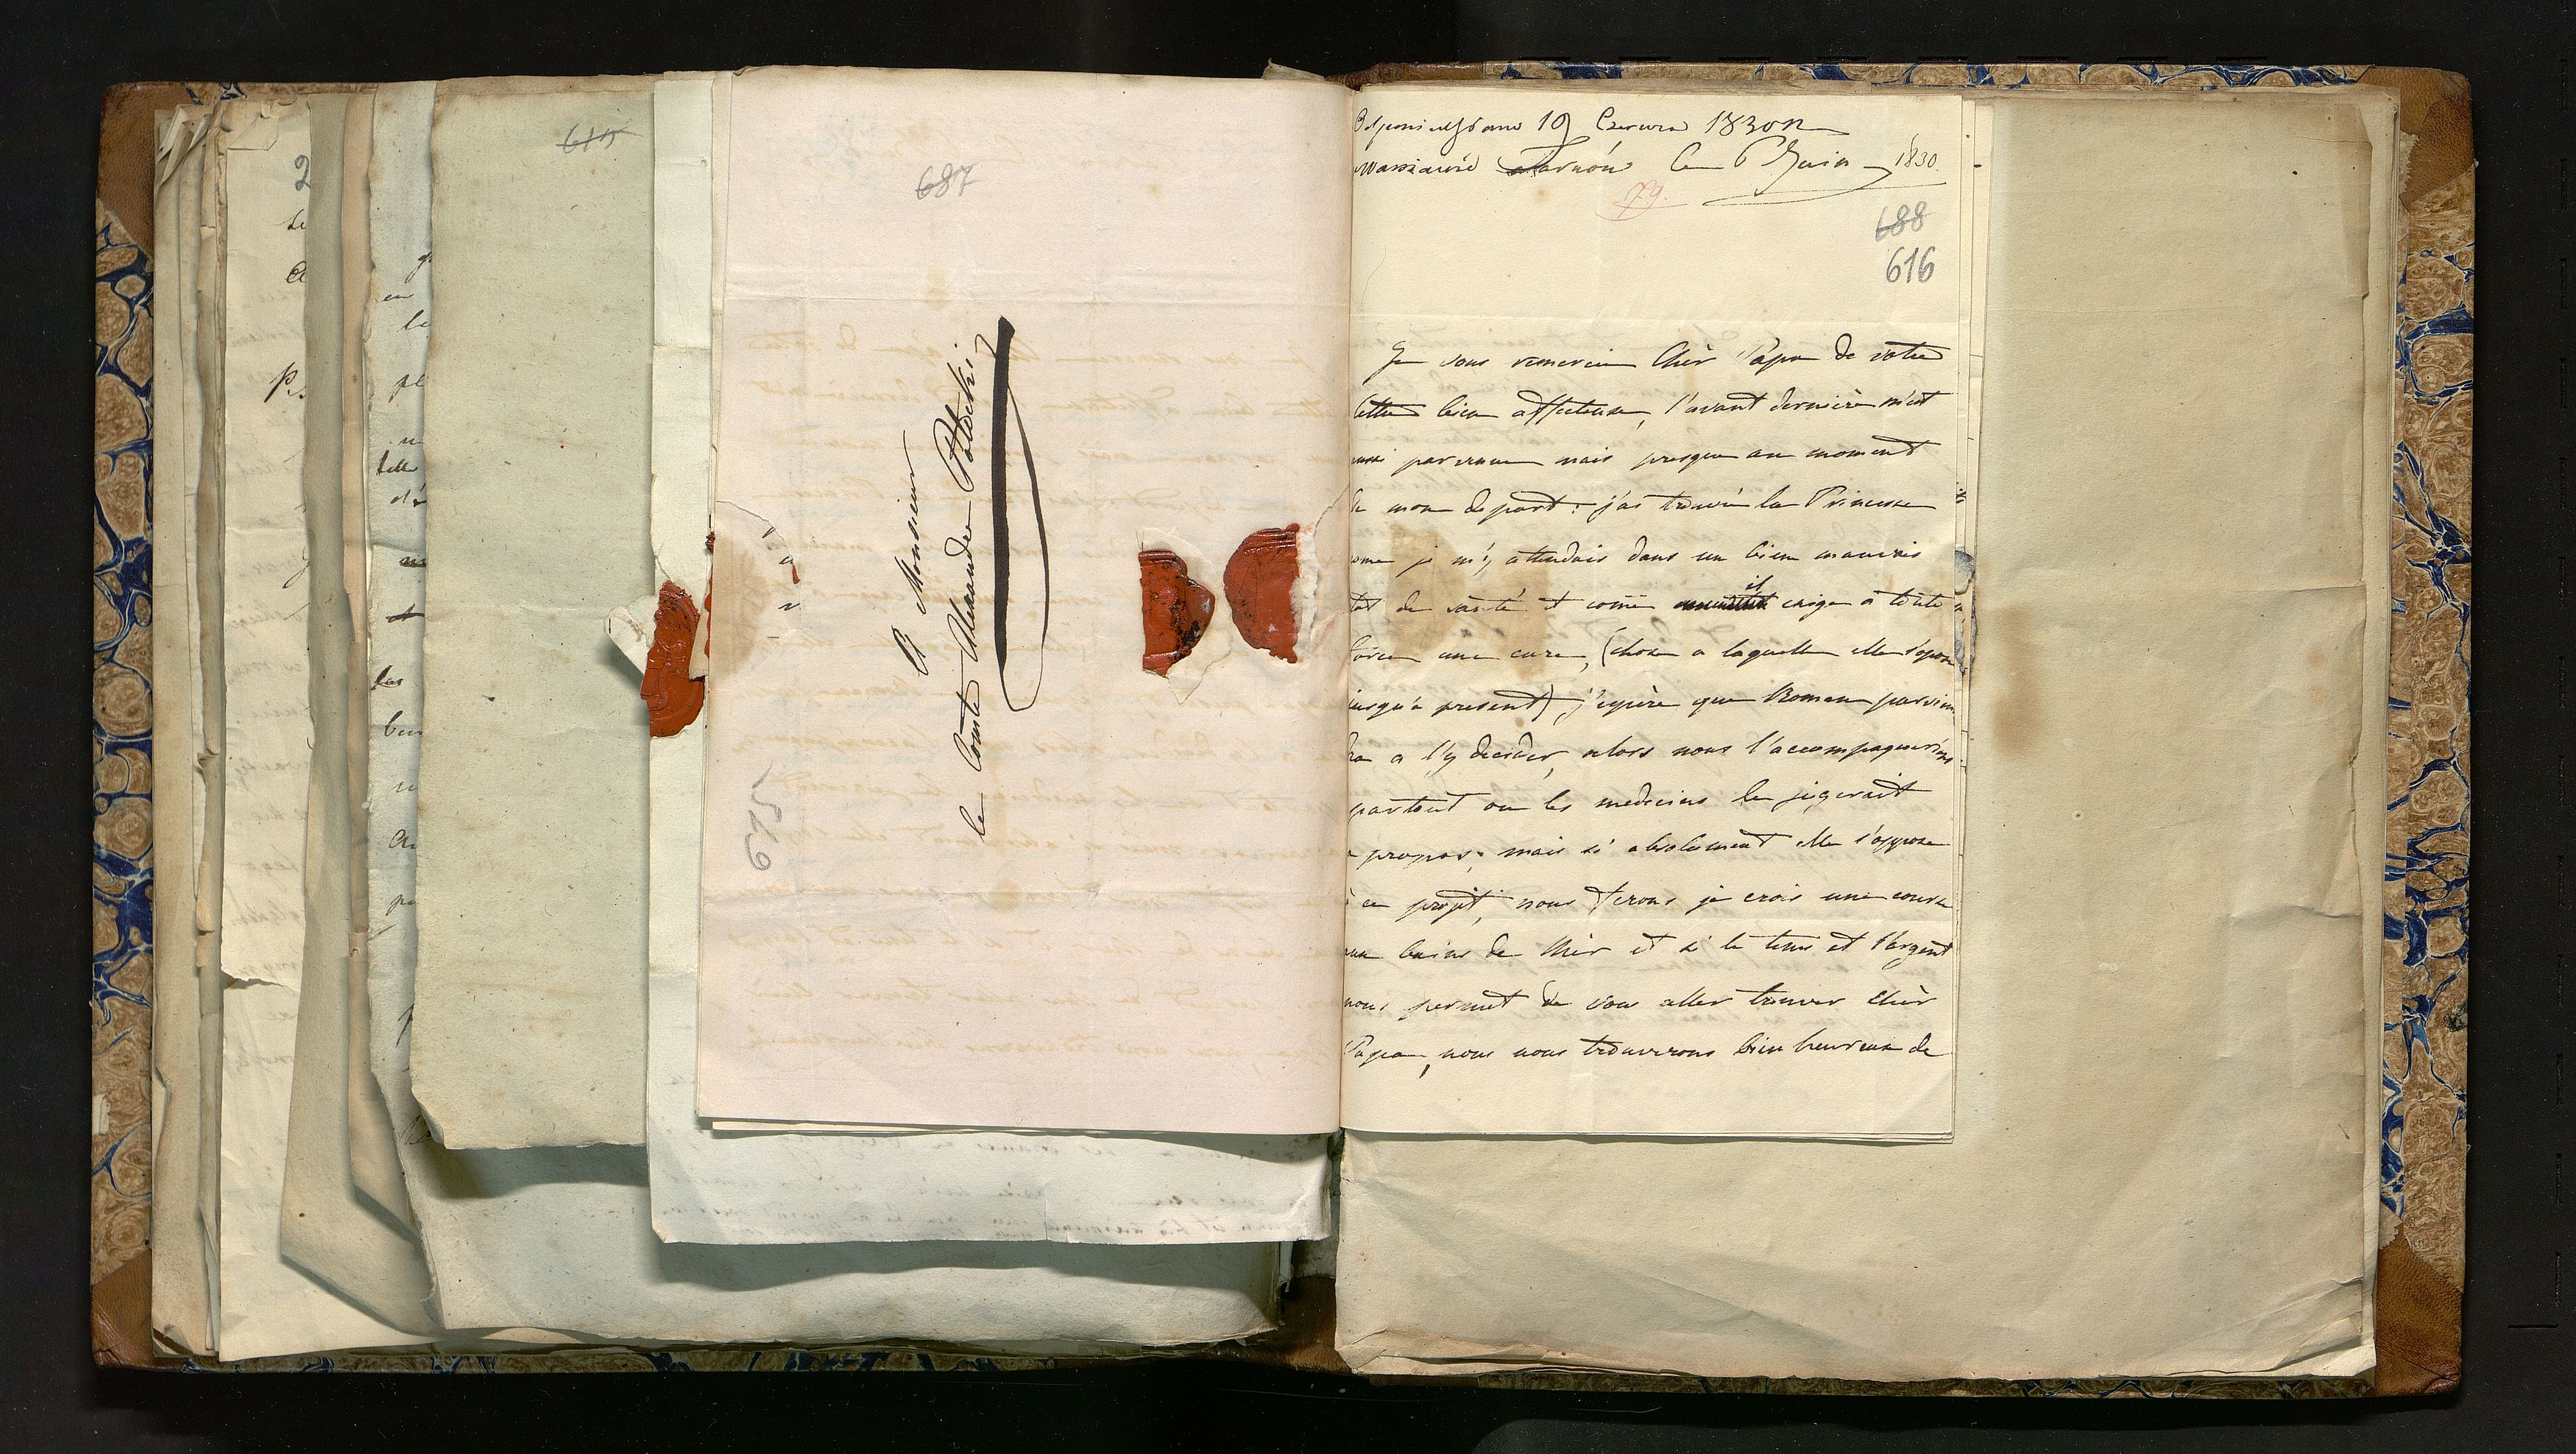 687
A Monsieur
le Comte Alexandre Potocki
615
Odpowiedziano 19 Czerwca 1830 R
Tarnów le 6 Juin 1830.
79.
688
616
Je vous remercie Chèr Papa de votre
lettre bien affecteuse, l'avant dernière m'est
aussi parvenue mais presque au moment
de mon depart: j'ai trouvé la Princesse
come je m'y attendais dans un bien mauvais
etat de santé et come il exige a toute
force une cure, (chose a laquelle elle s'opose
jusqu'a present) j'espère que Roman parvien
dra a l'y decider, alors nous l'accompagnerons
partout ou les medecins le jugerait
a propos; mais si absolument elle s'oppose
à ce projet, nous ferons je crois une course
aux bains de Mèr et si le tems et l'argent
nous permet de vous aller trouver Chèr
Papa, nous nous trouverons bien heureux de